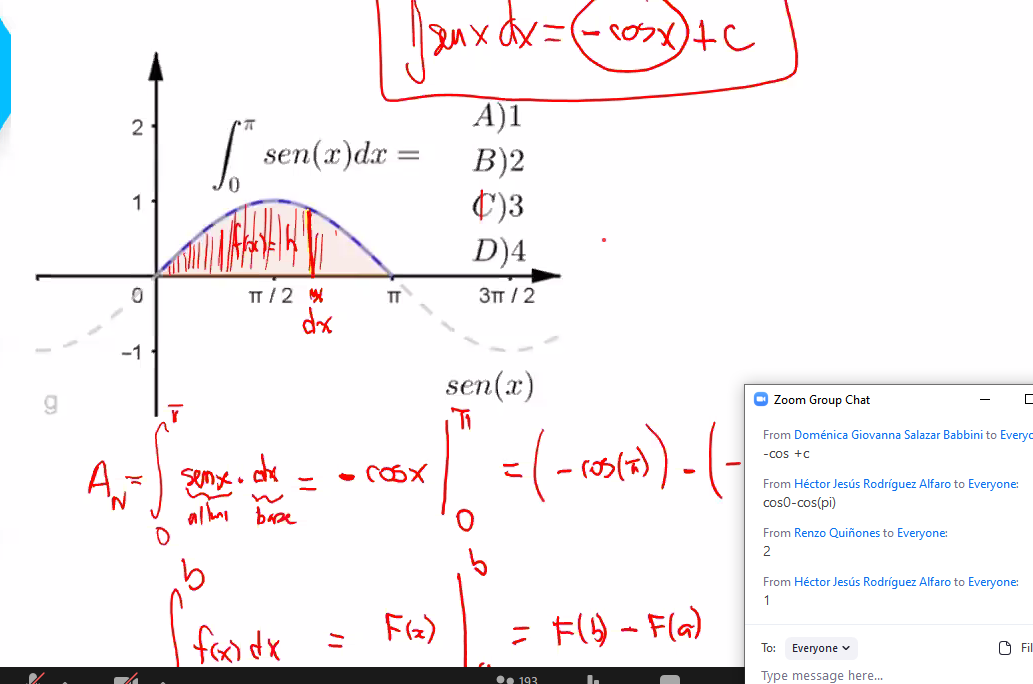 ∫ sen x dx = -cos x + C
2
∫₀^π sen(x)dx =
A)1
B)2
C)3
D)4
1
f(x)=h
0
π / 2
x
π
3π / 2
dx
−1
g
sen(x)
A_N = ∫₀^π sen x · dx = - cos x |₀^π = (- cos(π)) - (-
altura base
∫^b f(x) dx = F(x) |^b = F(b) - F(a)
Zoom Group Chat
From Doménica Giovanna Salazar Babbini to Everyo
-cos +c
From Héctor Jesús Rodríguez Alfaro to Everyone:
cos0-cos(pi)
From Renzo Quiñones to Everyone:
2
From Héctor Jesús Rodríguez Alfaro to Everyone:
1
To: Everyone
Fil
Type message here...
193